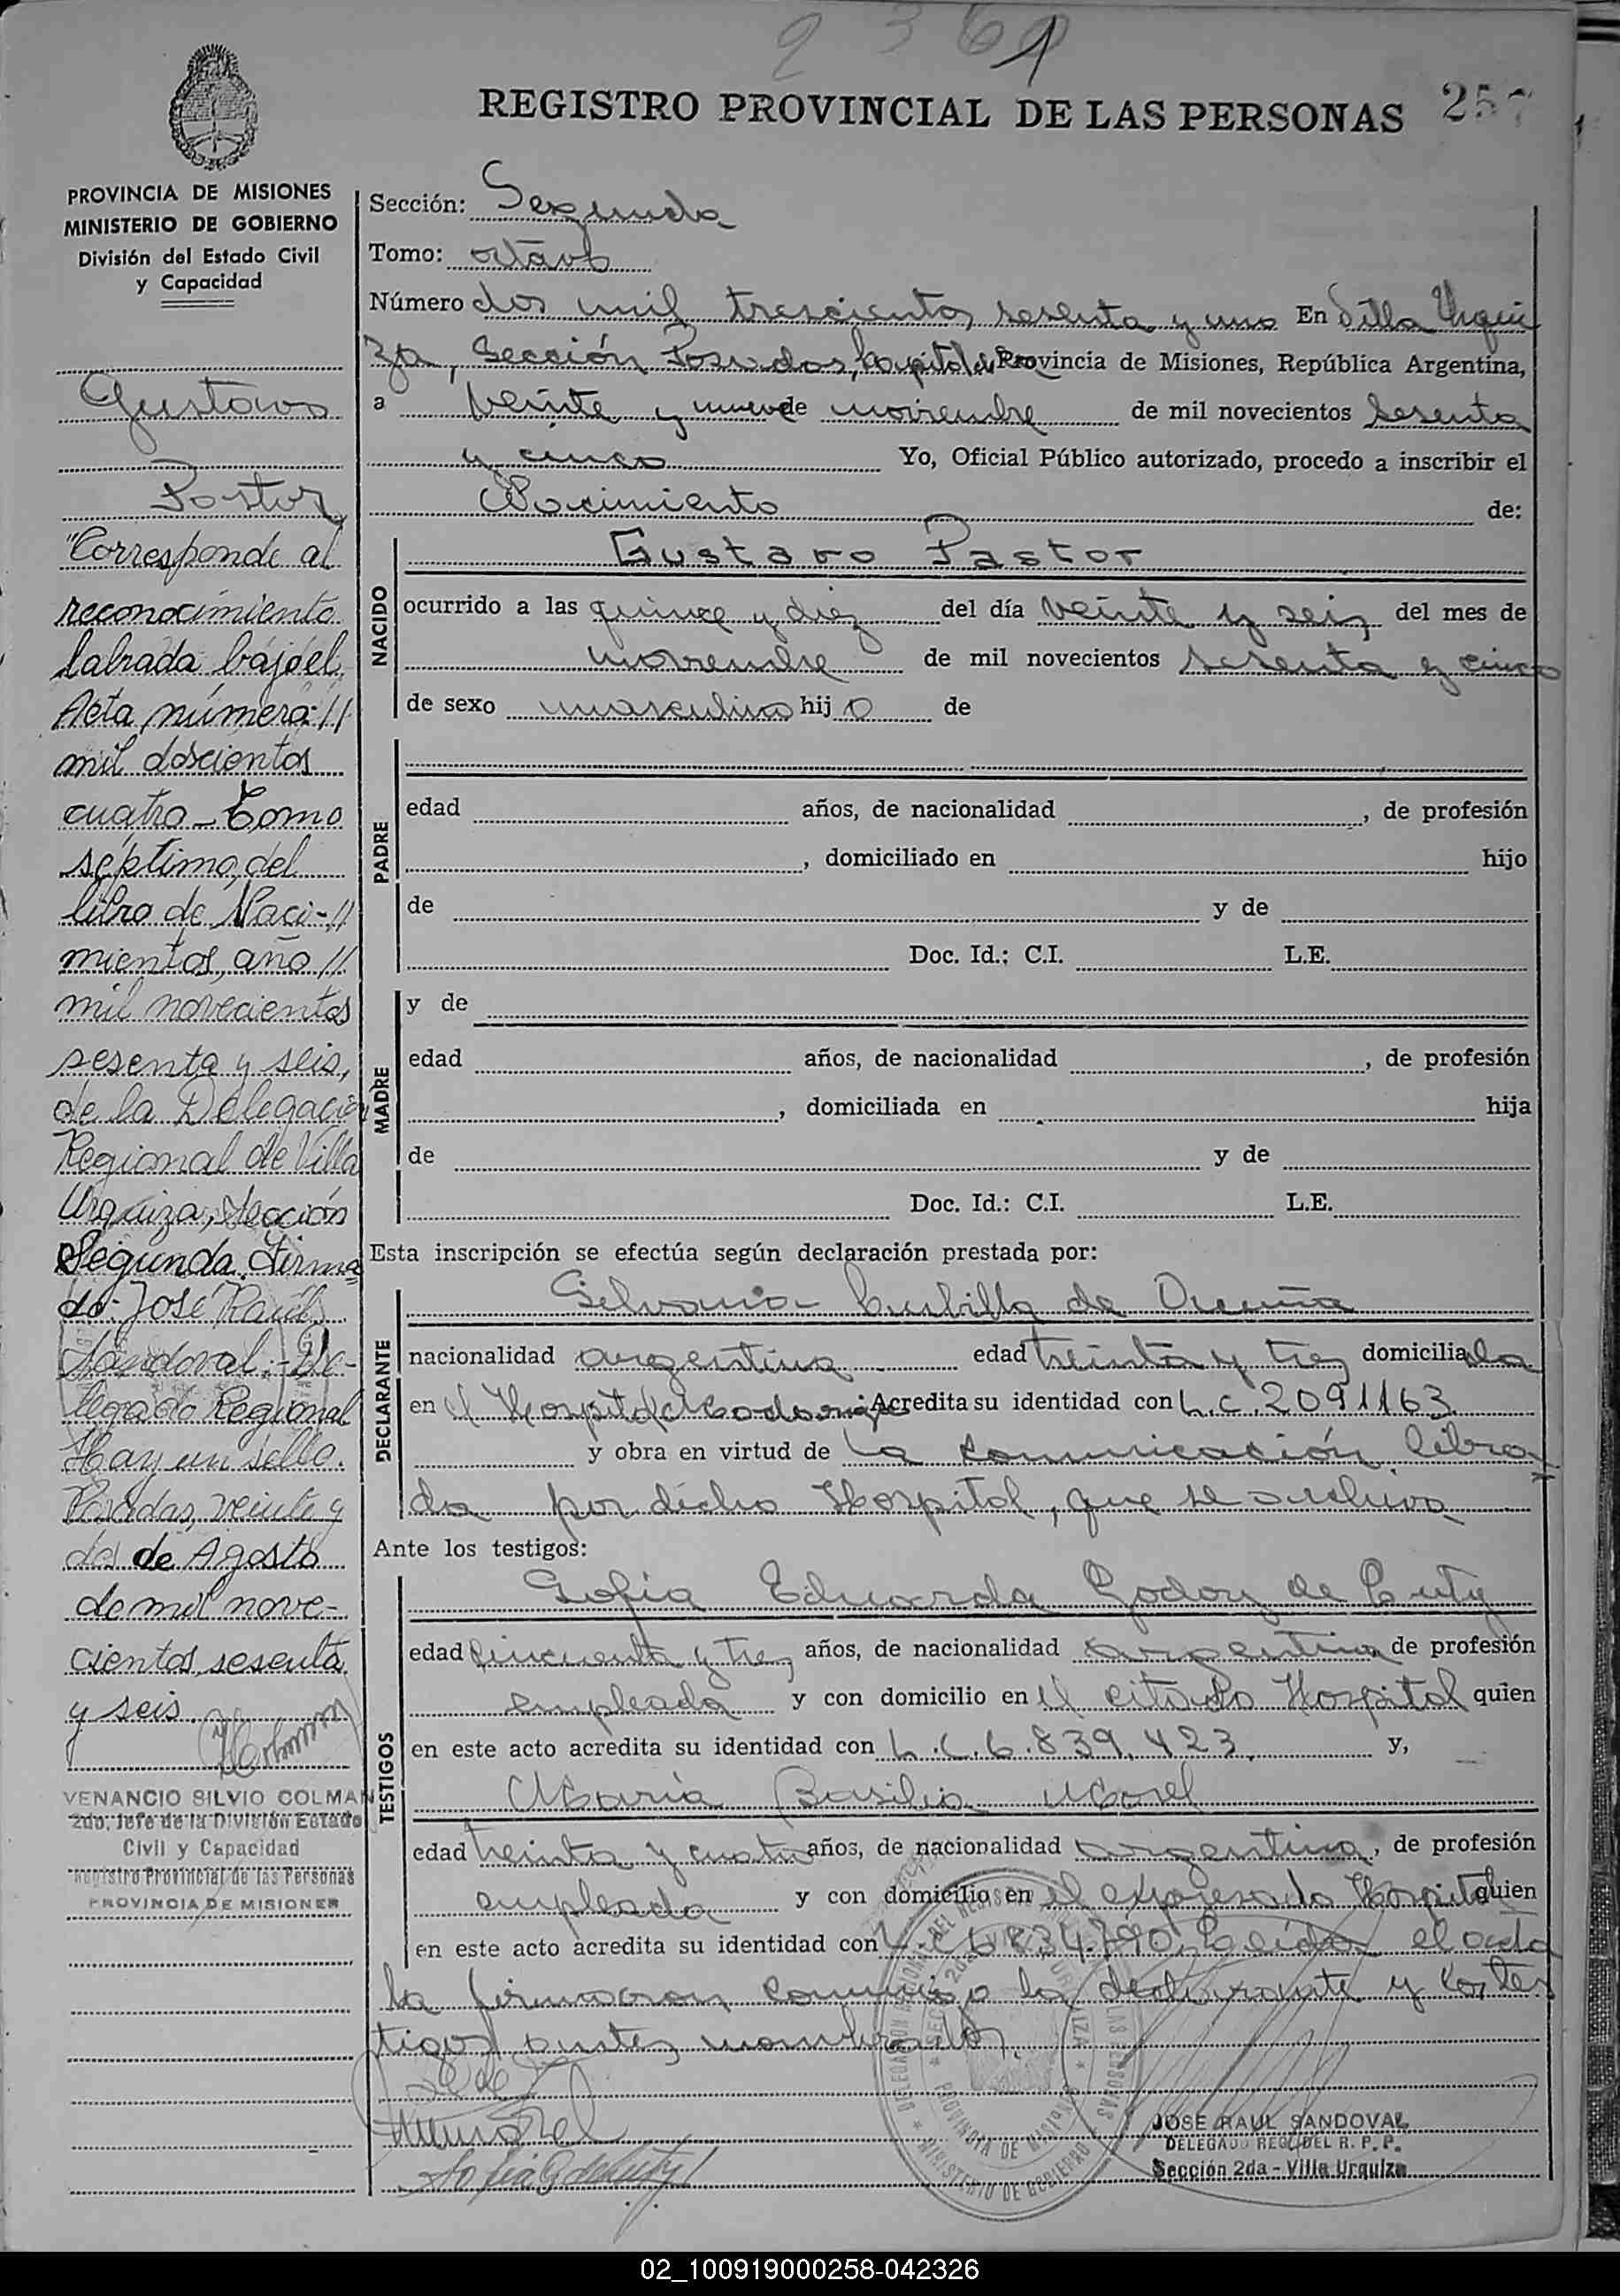 2361
REGISTRO PROVINCIAL DE LAS PERSONAS 257
PROVINCIA DE MISIONES
MINISTERIO DE GOBIERNO
División del Estado Civil
y Capacidad
Gustavo
Pastor
"Corresponde al
reconocimiento
labrada bajo el
Acta número: //
mil doscientos
cuatro - Tomo
séptimo, del
libro de Naci-//
mientos, año //
mil novecientos
sesenta y seis,
de la Delegación
Regional de Villa
Urquiza, Sección
Segunda. Firma
do. José Raúl
Sandoval.- De-
legado Regional
Hay un sello.
Posadas, veinte y
dos de Agosto
de mil nove-
cientos sesenta
y seis.
VENANCIO SILVIO COLMAN
2do. Jefe de la División Estado
Civil y Capacidad
Registro Provincial de las Personas
PROVINCIA DE MISIONES
Sección: Segunda
Tomo: octavo
Número dos mil trescientos sesenta y uno En Villa Urqui
za, Sección Posadas, Capital de la Provincia de Misiones, República Argentina,
a veinte y nueve de noviembre de mil novecientos sesenta
y cinco Yo, Oficial Público autorizado, procedo a inscribir el
Nacimiento de:
NACIDO
Gustavo Pastor
ocurrido a las quince y diez del día veinte y seis del mes de
noviembre de mil novecientos sesenta y cinco
de sexo masculino hijo de
PADRE
edad años, de nacionalidad , de profesión
, domiciliado en hijo
de y de
Doc. Id.: C.I. L.E.
MADRE
y de
edad años, de nacionalidad , de profesión
, domiciliada en hija
de y de
Doc. Id.: C.I. L.E.
Esta inscripción se efectúa según declaración prestada por:
DECLARANTE
Silvania Cubilla de Acuña
nacionalidad argentina edad treinta y tres domiciliada
en el Hospital Madariaga Acredita su identidad con L.C. 2091163
y obra en virtud de la comunicación libra
da por dicho Hospital, que se archiva
Ante los testigos:
TESTIGOS
Sofia Eduarda Godoy de Cuty
edad cincuenta y tres años, de nacionalidad argentina de profesión
empleada y con domicilio en el citado Hospital quien
en este acto acredita su identidad con L.C. 6.839.423 y,
María Basilia Morel
edad treinta y cuatro años, de nacionalidad argentina, de profesión
empleada y con domicilio en el expresado Hospital quien
en este acto acredita su identidad con L.C. 6834.790. Leída el acta
la firmaron conmigo la declarante y los tes
tigos antes nombrados.
JOSE RAUL SANDOVAL
DELEGADO REG. DEL R. P. P.
Sección 2da - Villa Urquiza
02_100919000258-042326